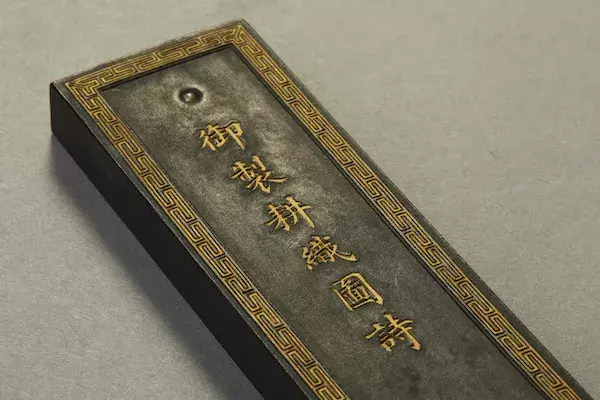 御製耕織圖詩